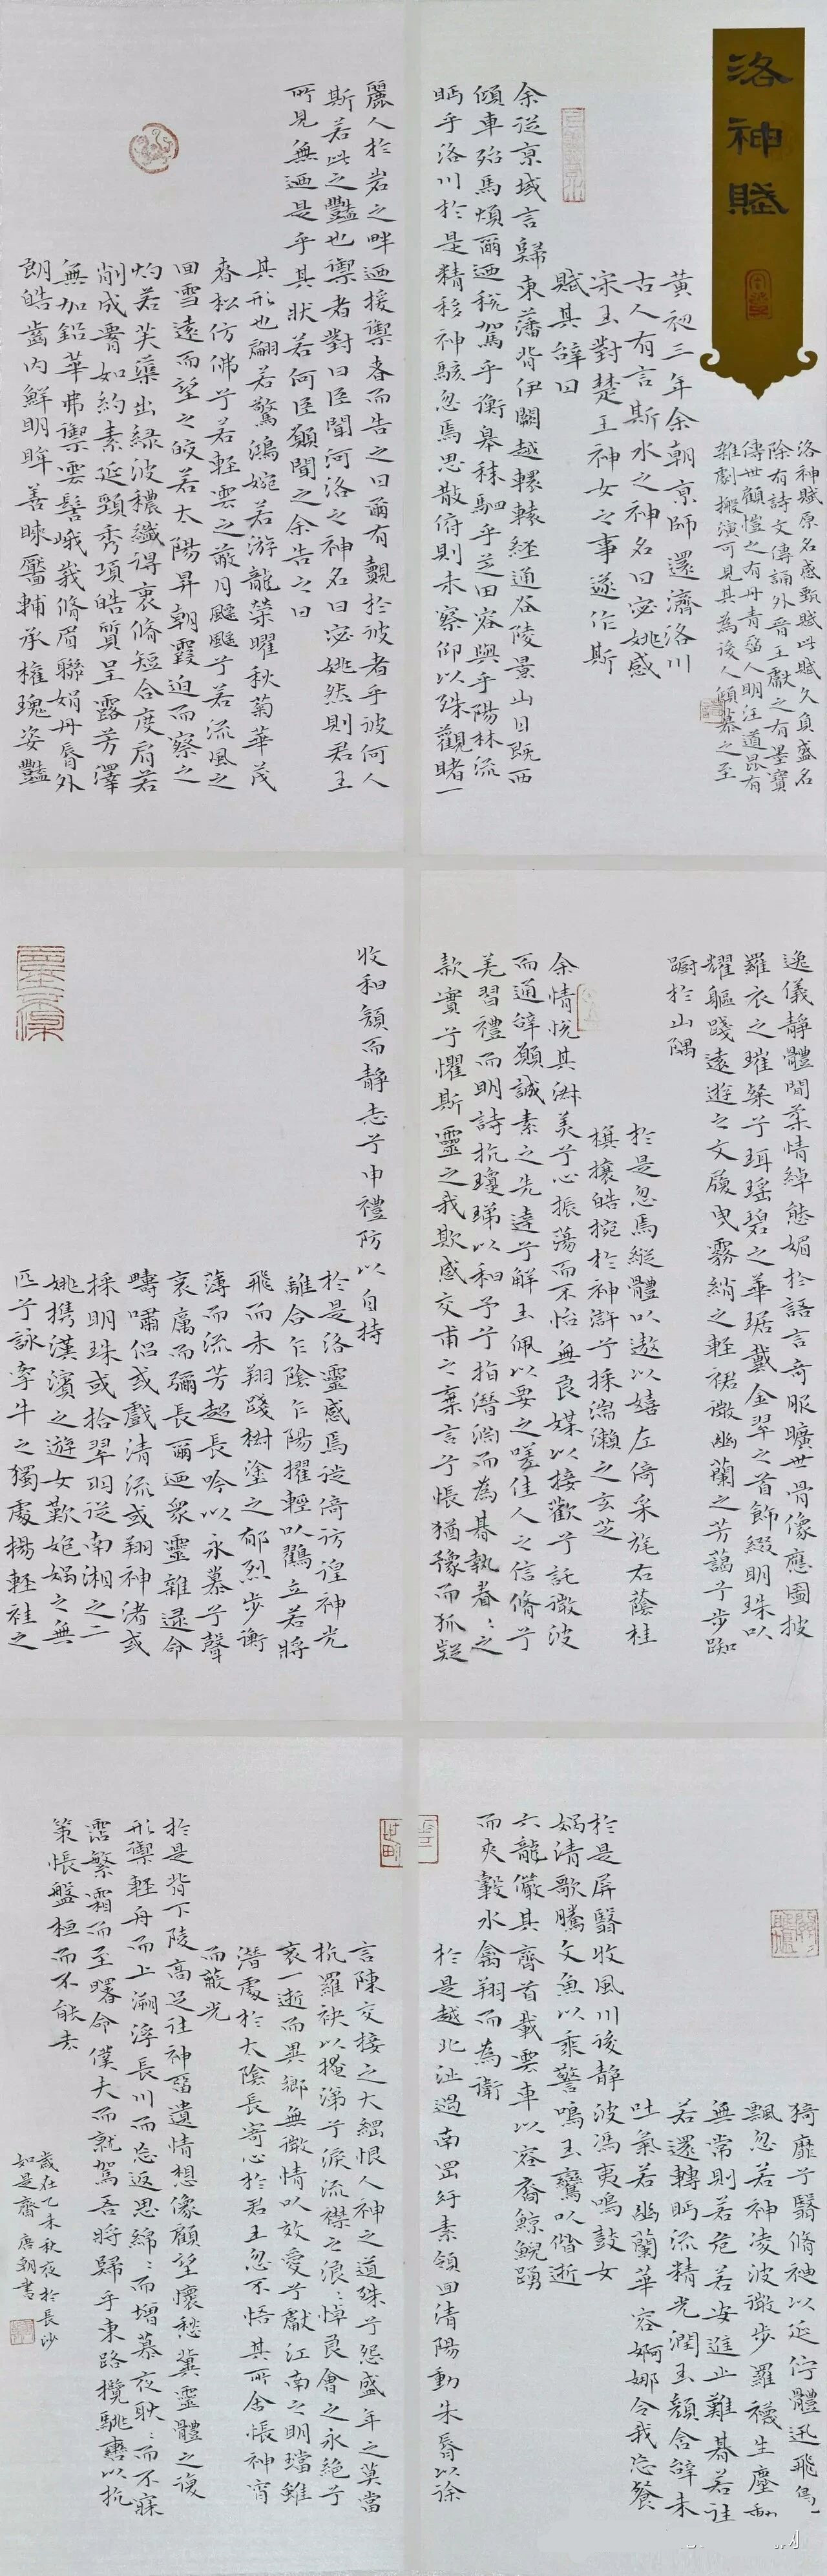 洛神賦
洛神賦原名感甄賦此賦久負盛名
除有詩文傳誦外晉王獻之有墨寶
傳世顧愷之有丹青留人明汪道昆有
雜劇搬演可見其為後人傾慕之至
黃初三年余朝京師還濟洛川
古人有言斯水之神名曰宓妃感
宋玉對楚王神女之事遂作斯
賦其辭曰
余從京域言歸東藩背伊闕越轘轅經通谷陵景山日既西
傾車殆馬煩爾迺稅駕乎蘅皋秣駟乎芝田容與乎陽林流
眄乎洛川於是精移神駭忽焉思散俯則未察仰以殊觀睹一
麗人於岩之畔迺援御者而告之曰爾有覿於彼者乎彼何人
斯若此之豔也御者對曰臣聞河洛之神名曰宓妃然則君王
所見無迺是乎其狀若何臣願聞之余告之曰
其形也翩若驚鴻婉若游龍榮曜秋菊華茂
春松仿佛兮若輕雲之蔽月飄颻兮若流風之
回雪遠而望之皎若太陽昇朝霞迫而察之
灼若芙蕖出綠波穠纖得衷脩短合度肩若
削成腰如約素延頸秀項皓質呈露芳澤
無加鉛華弗御雲髻峨峨脩眉聯娟丹脣外
朗皓齒內鮮明眸善睞靨輔承權瑰姿豔
逸儀靜體閒柔情綽態媚於語言奇服曠世骨像應圖披
羅衣之璀粲兮珥瑤碧之華琚戴金翠之首飾綴明珠以
耀軀踐遠遊之文履曳霧綃之輕裾微幽蘭之芳藹兮步踟
躕於山隅
於是忽焉縱體以遨以嬉左倚采旄右蔭桂
旗攘皓捥於神滸兮採湍瀨之玄芝
余情悅其淑美兮心振蕩而不怡無良媒以接歡兮託微波
而通辭願誠素之先達兮解玉佩以要之嗟佳人之信脩兮
羌習禮而明詩抗瓊珶以和予兮指潛淵而為期執眷眷之
款實兮懼斯靈之我欺感交甫之棄言兮悵猶豫而狐疑
收和顏而靜志兮申禮防以自持
於是洛靈感焉徙倚彷徨神光
離合乍陰乍陽擢輕以鶴立若將
飛而未翔踐椒塗之郁烈步蘅
薄而流芳超長吟以永慕兮聲
哀厲而彌長爾迺眾靈雜遝命
疇嘯侶或戲清流或翔神渚或
採明珠或拾翠羽從南湘之二
姚攜漢濱之遊女歎匏媧之無
匹兮詠牽牛之獨處揚輕袿之
猗靡兮翳脩袖以延佇體迅飛鳧
飄忽若神凌波微步羅襪生塵動
無常則若危若安進止難期若往
若還轉眄流精光潤玉顏含辭未
吐氣若幽蘭華容婀娜令我忘餐
於是屏翳收風川後靜波馮夷鳴鼓女
媧清歌騰文魚以乘警鳴玉鸞以偕逝
六龍儼其齊首載雲車以容裔鯨鯢踴
而夾轂水禽翔而為衛
於是越北沚過南岡紆素領回清陽動朱脣以徐
言陳交接之大綱恨人神之道殊兮怨盛年之莫當
抗羅袂以掩涕兮淚流襟之浪浪悼良會之永絕兮
哀一逝而異鄉無微情以效愛兮獻江南之明璫雖
潛處於太陰長寄心於君王忽不悟其所舍悵神宵
而蔽光
於是背下陵高足往神留遺情想像顧望懷愁冀靈體之復
形御輕舟而上溯浮長川而忘返思綿綿而增慕夜耿耿而不寐
霑繁霜而至曙命僕夫而就駕吾將歸乎東路攬騑轡以抗
策悵盤桓而不能去
歲在乙未秋夜於長沙
如是齋唐朝書